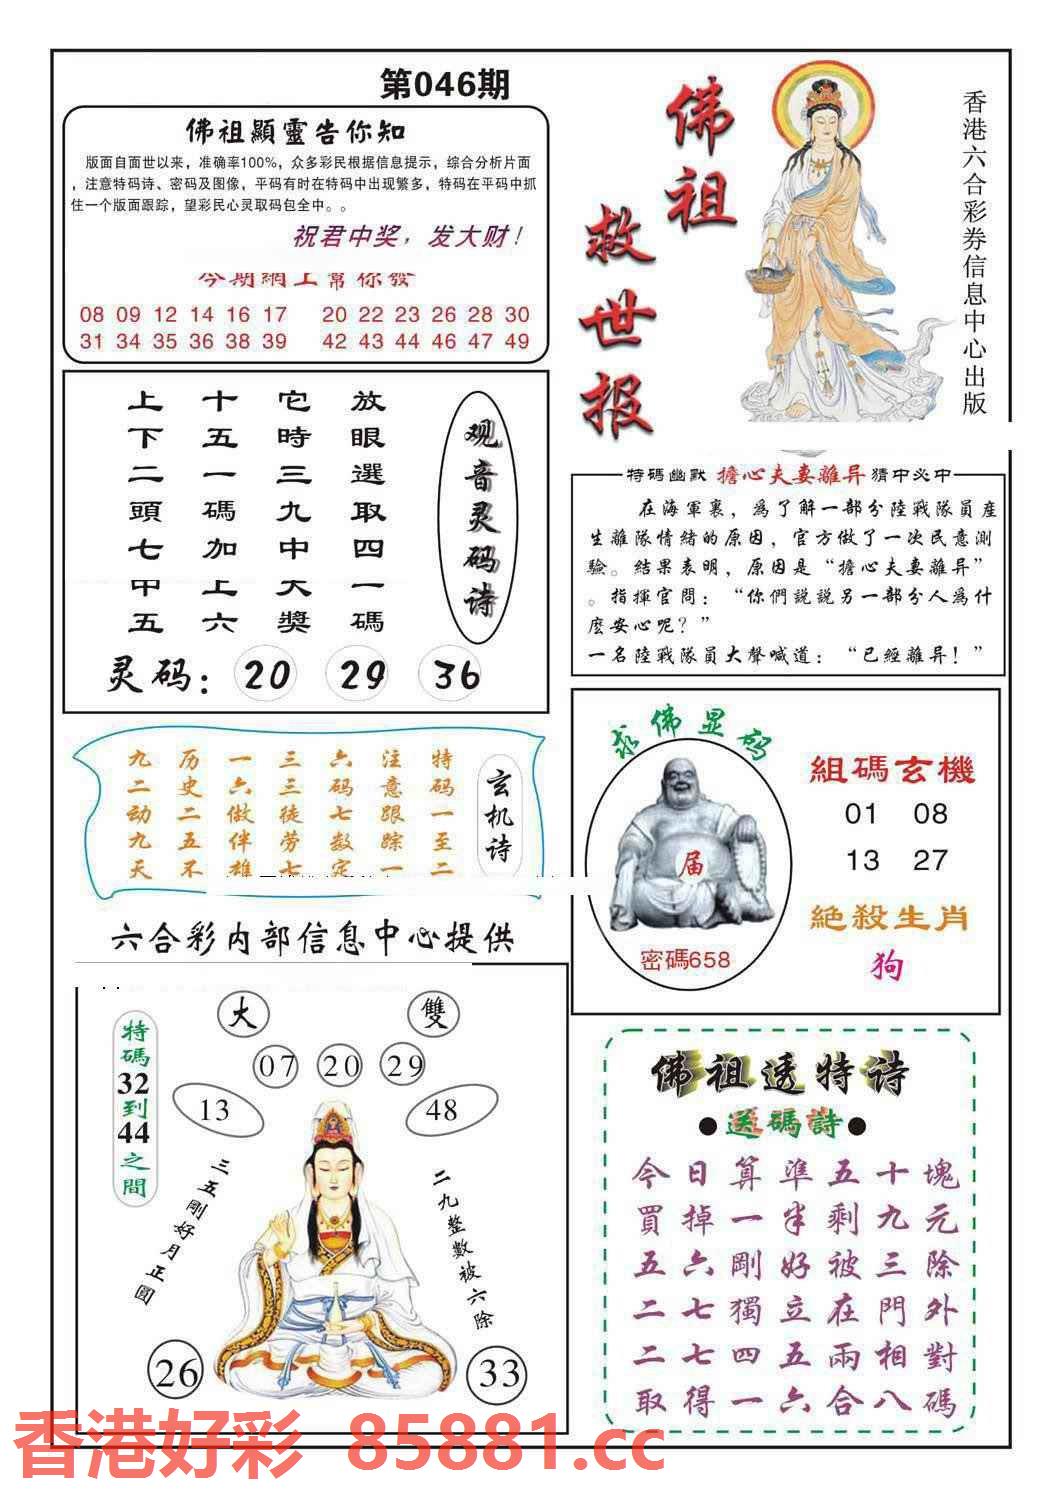 第046期
佛祖顯靈告你知
版面自面世以来，准确率100%，众多彩民根据信息提示，综合分析片面
，注意特码诗、密码及图像，平码有时在特码中出现繁多，特码在平码中抓
住一个版面跟踪，望彩民心灵取码包全中。。
祝君中奖，发大财！
今期網上幫你發
08 09 12 14 16 17 20 22 23 26 28 30
31 34 35 36 38 39 42 43 44 46 47 49
佛祖
救世报
香港六合彩券信息中心出版
观音灵码诗
放眼選取四一碼
它時三九中大獎
十五一碼加上六
上下二頭七中五
灵码： 20 29 36
特碼幽默 擔心夫妻離异 猜中必中
在海軍裏，爲了解一部分陸戰隊員産
生離隊情緒的原因，官方做了一次民意測
驗。結果表明，原因是“擔心夫妻離异”
。指揮官問：“你們説説另一部分人爲什
麽安心呢？”
一名陸戰隊員大聲喊道：“已經離异！”
玄机诗
特码一至二
注意跟踪一
六码七数定
三三徒劳七
一六做伴雄
历史二五不
九二动九天
六合彩内部信息中心提供
求佛显码
届
密碼658
組碼玄機
01 08
13 27
絶殺生肖
狗
大 雙
07 20 29
13 48
特碼32到44之間
三五剛好月正圓
二九整數被六除
26 33
佛祖透特诗
●送碼詩●
今日算準五十塊
買掉一半剩九元
五六剛好被三除
二七獨立在門外
二七四五兩相對
取得一六合八碼
香港好彩 85881.cc